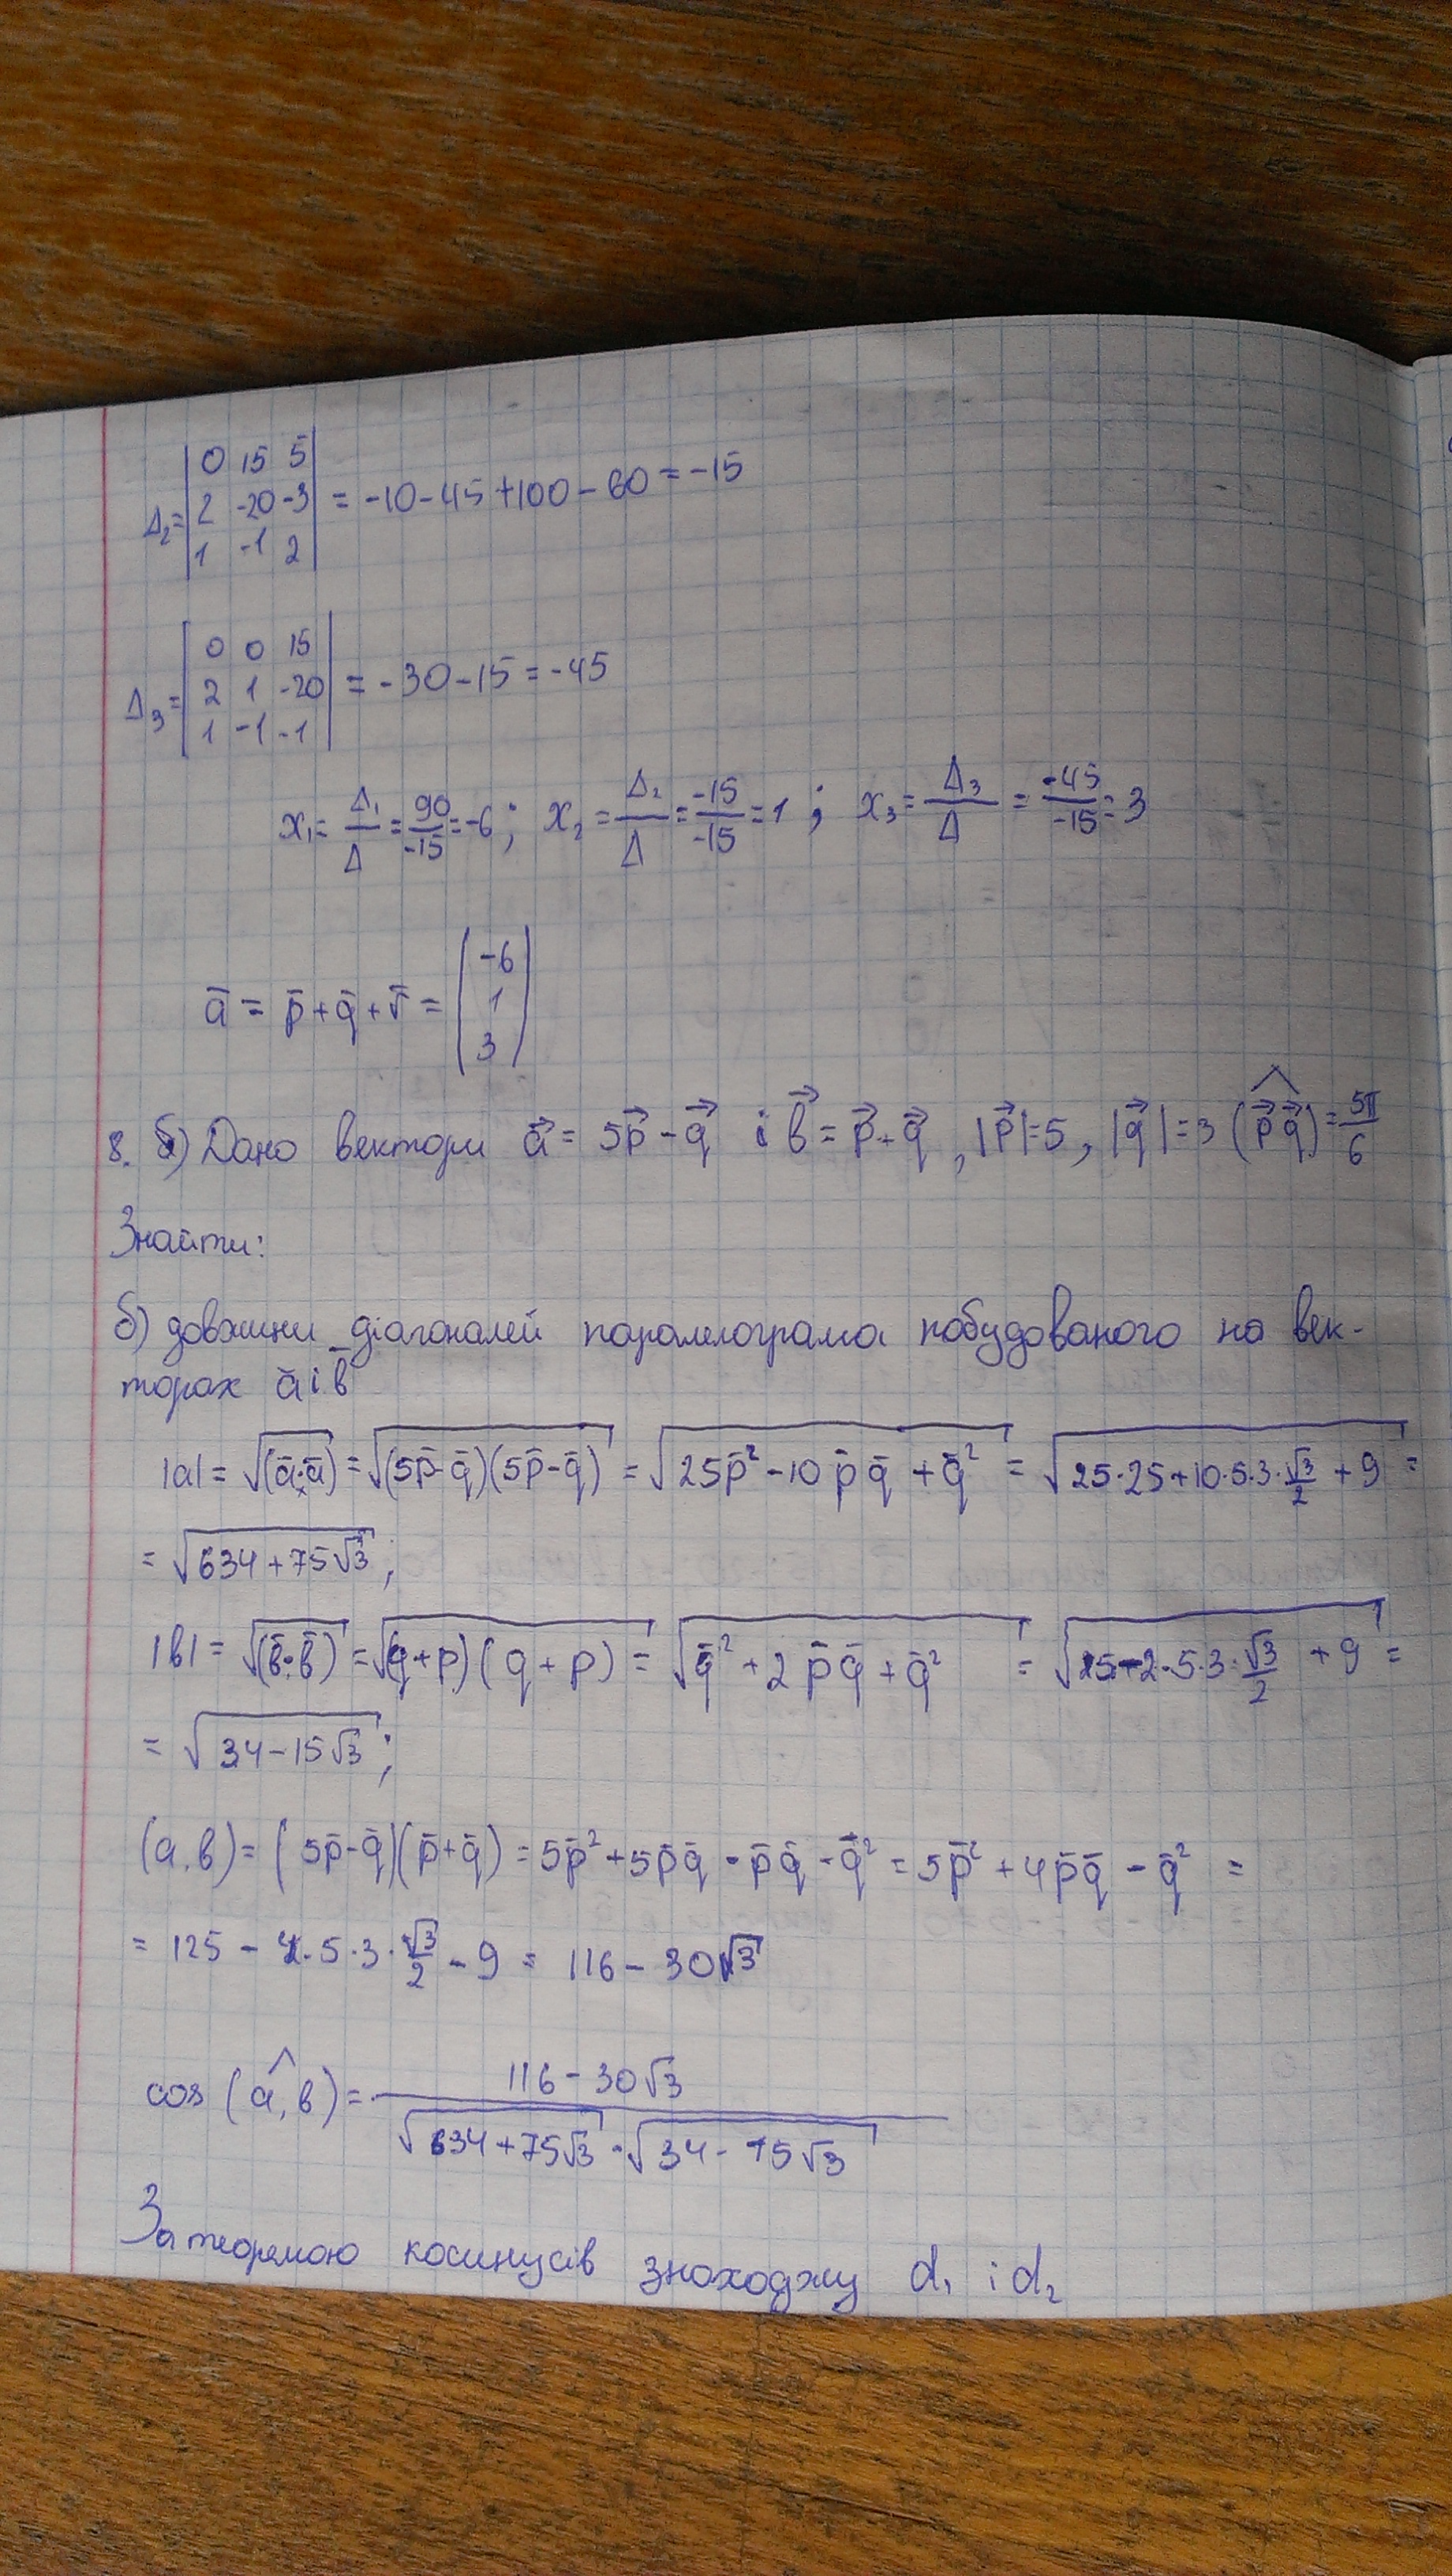 Δ₂ = |0 15 5; 2 -20 -3; 1 -1 2| = -10-45+100-60 = -15
Δ₃ = |0 0 15; 2 1 -20; 1 -1 -1| = -30-15 = -45
x₁ = Δ₁/Δ = 90/-15 = -6 ; x₂ = Δ₂/Δ = -15/-15 = 1 ; x₃ = Δ₃/Δ = -45/-15 = 3
ā = p̄ + q̄ + r̄ = (-6; 1; 3)
8. б) Дано вектори a⃗ = 5p⃗ - q⃗ і b⃗ = p⃗ + q⃗, |p⃗|=5, |q⃗|=3 (p⃗^q⃗) = 5π/6
Знайти:
б) довжини діагоналей паралелограма побудованого на век-
торах ā і b̄
|a| = √(ā·ā) = √(5p̄-q̄)(5p̄-q̄) = √25p̄²-10p̄q̄+q̄² = √25·25+10·5·3·√3/2+9 =
= √634+75√3 ;
|b| = √(b̄·b̄) = √(q+p)(q+p) = √q̄²+2p̄q̄+q̄² = √25-2·5·3·√3/2+9 =
= √34-15√3 ;
(a,b) = (5p̄-q̄)(p̄+q̄) = 5p̄²+5p̄q̄-p̄q̄-q̄² = 5p̄²+4p̄q̄-q̄² =
= 125-4·5·3·√3/2-9 = 116-30√3
cos(a^,b) = 116-30√3 / √634+75√3 · √34-15√3
За теоремою косинусів знаходжу d₁ і d₂